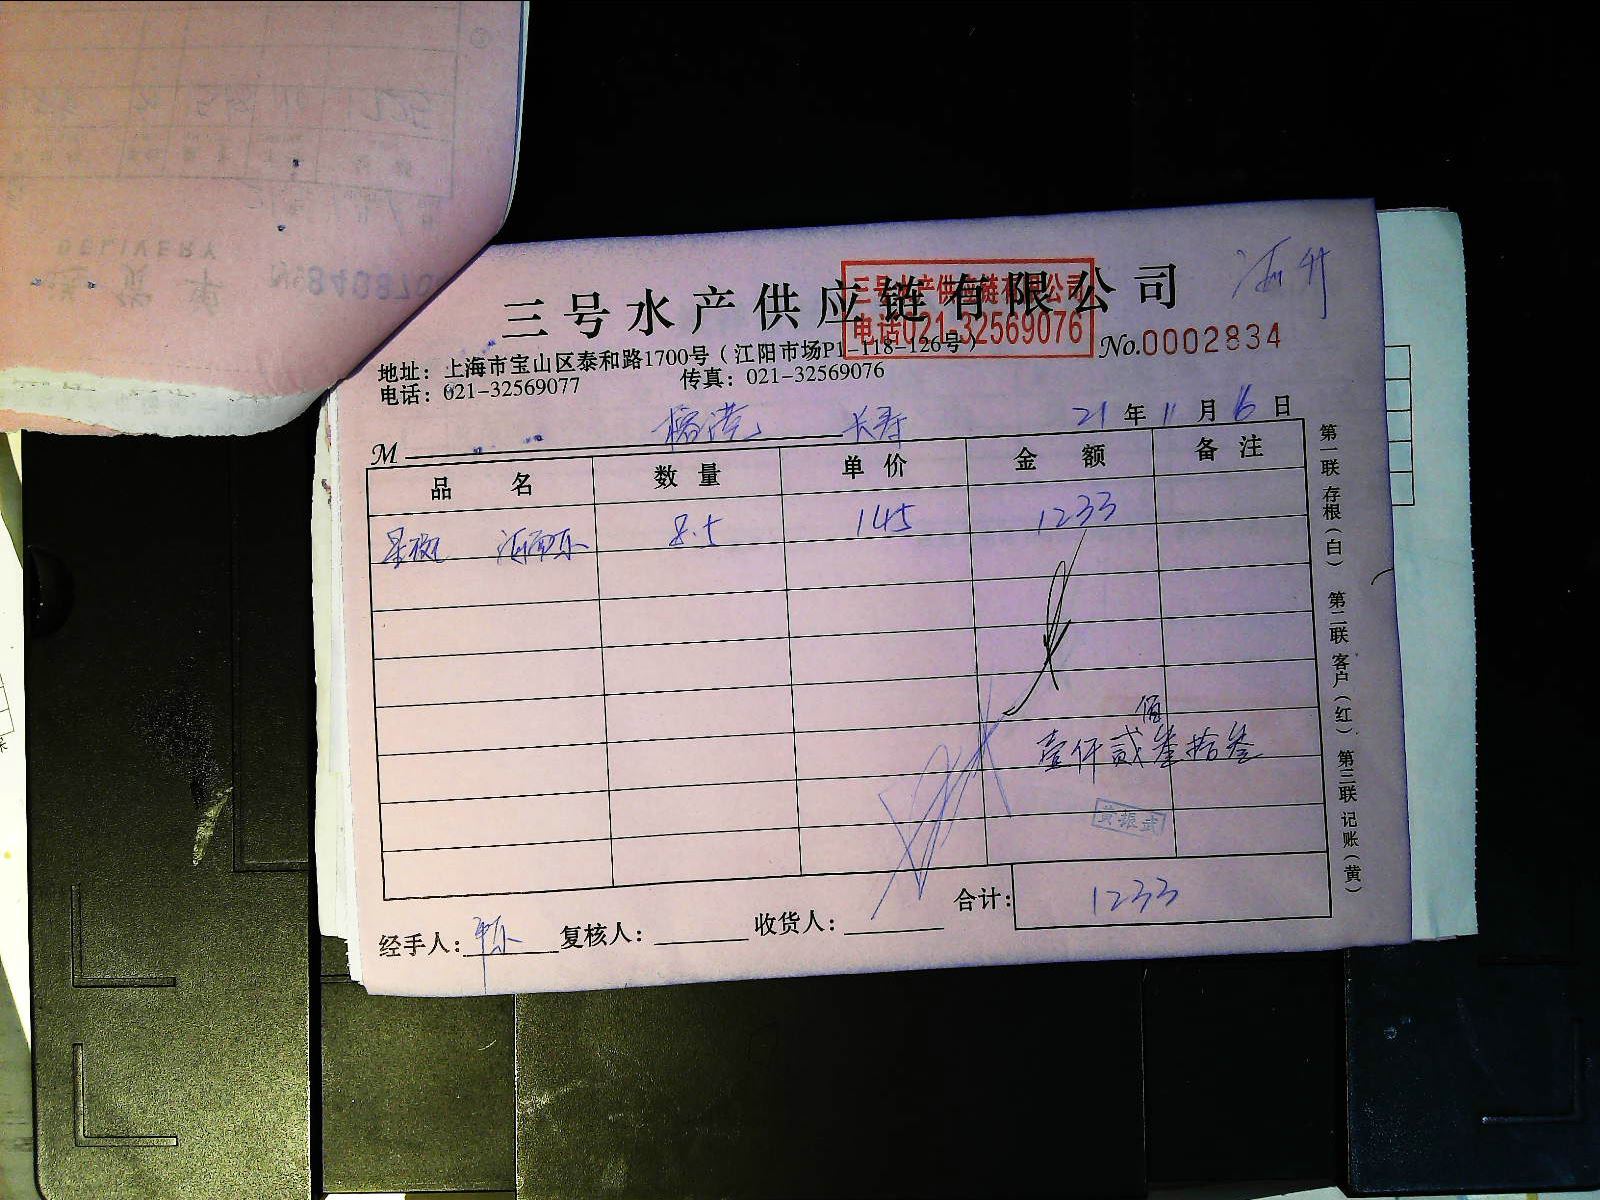 三号水产供应链有限公司
三号水产供应链有限公司
电话021-32569076
No.0002834
地址：上海市宝山区泰和路1700号（江阳市场P1-118-126号）
电话：021-32569077 传真：021-32569076
M 长寿 21年11月6日
品名 数量 单价 金额 备注
星斑 8.5 145 1233
佰
壹仟贰叁拾叁
黄振武
合计： 1233
经手人： 复核人： 收货人：
第一联 存根（白） 第二联 客户（红） 第三联 记账（黄）
DELIVERY
送货单